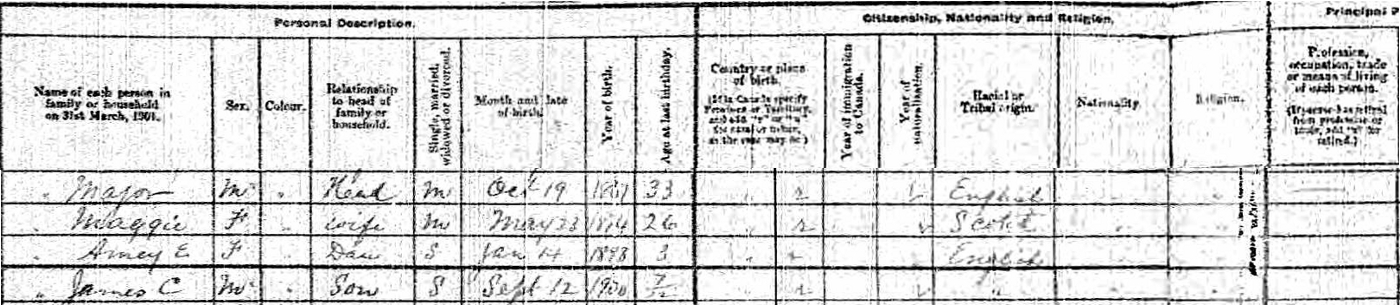 Personal Description. Citizenship, Nationality and Religion. Principal
Name of each person in family or household on 31st March, 1901. Sex. Colour. Relationship to head of family or household. Single, married, widowed or divorced. Month and date of birth. Year of birth. Age at last birthday. Country or place of birth. (If in Canada specify Province or Territory, and add "r" or "u" for rural or urban, as the case may be.) Year of immigration to Canada. Year of naturalization. Racial or Tribal origin. Nationality. Religion. Profession, occupation, trade or means of living of each person. (If person has retired from profession or trade, add "r" for retired.)
" Major M " Head M Oct 19 33 " r English
" Maggie F " wife M May 23 1874 26 " r Scotch " "
" Amey E F " Dau S Jan 14 1898 3 " r English
" James C M " Son S Sept 12 1900 7/12 " r " " "